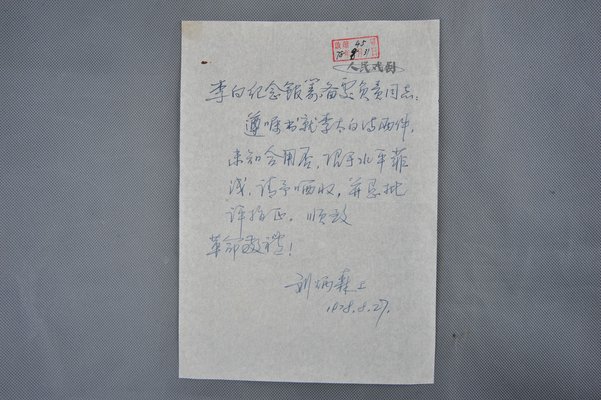 收信 45 号
78年8月31日
人民戏剧
李白纪念馆筹备处负责同志：
遵嘱书就李太白诗两件，
未知合用否，限于水平菲
浅，请予哂收，并恳批
评指正。顺致
革命敬礼！
刘炳森上
1978.8.27.